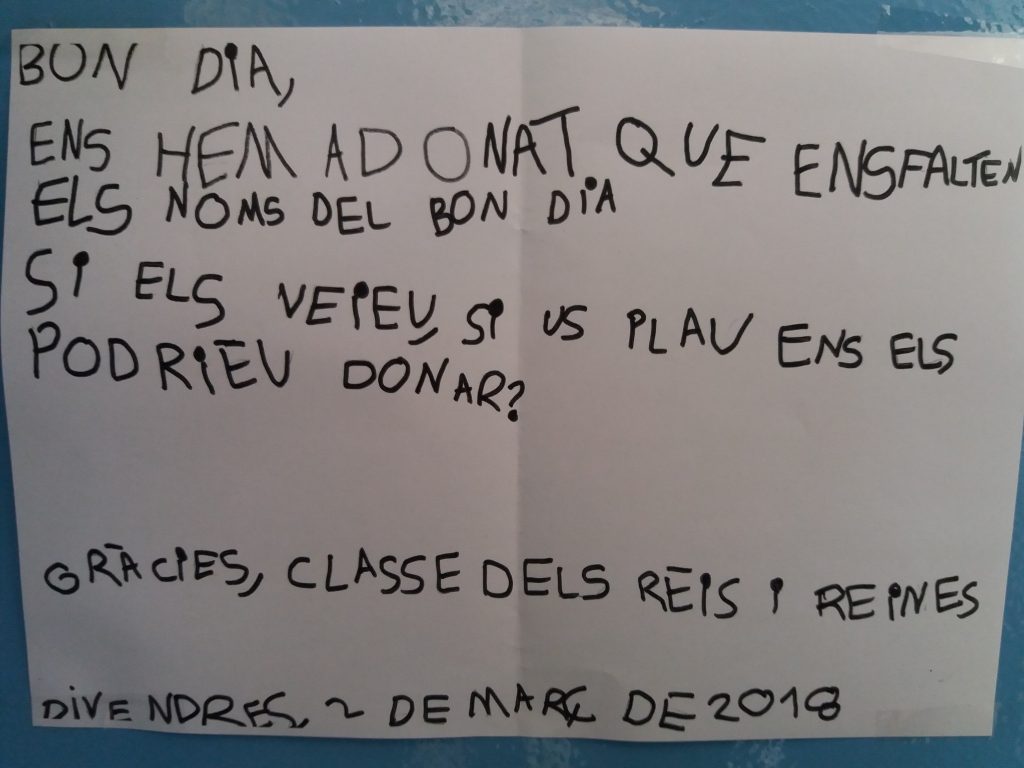 BON DIA,
ENS HEM ADONAT QUE ENSFALTEN
ELS NOMS DEL BON DIA
SI ELS VEIEU, SI US PLAU ENS ELS
PODRIEU DONAR?
GRÀCIES, CLASSE DELS REIS I REINES
DIVENDRES, 2 DE MARÇ DE 2018